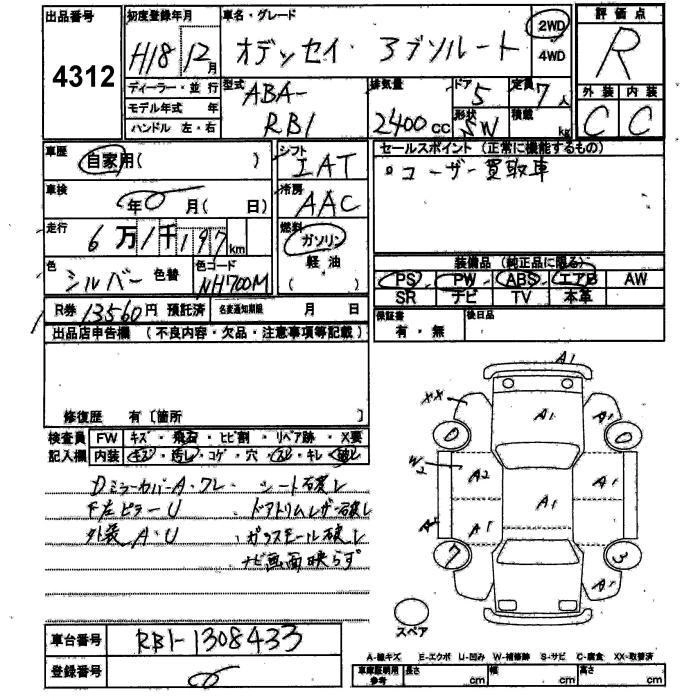 出品番号 4312
初度登録年月 H18 12月
車名・グレード オデッセイ・アブソルート
2WD 4WD
評価点 R
ディーラー・並行
モデル年式 年
ハンドル 左・右
型式 ABA-RB1
排気量 2400cc
ドア 5
形状 SW
定員 7人
積載 kg
外装 C
内装 C
車歴 自家用( )
シフト IAT
セールスポイント(正常に機能するもの)
・ユーザー買取車
車検 年 月( 日)
冷房 AAC
走行 6万1千197km
燃料 ガソリン 軽油 ( )
色 シルバー 色替
色コード NH700M
装備品(純正品に限る)
PS PW ABS エアB AW
SR ナビ TV 本革
R券 13560円 預託済
名変通知期限 月 日
保証書 有・無
後日品
出品店申告欄(不良内容・欠品・注意事項等記載)
修復歴 有〔箇所 〕
検査員記入欄
FW キズ・飛石・ヒビ割・リペア跡・X要
内装 キズ・汚レ・コゲ・穴・スレ・キレ・破レ
DミラーカバーA・ワレ シート破レ
F左ピラーU ドアトリムレザー破レ
外装A・U ガラスモール破レ
ナビ画面映らず
A1
XX
A1
A1
0
0
W2
A2
A1
A1
A2
A1
7
3
A1
スペア
車台番号 RB1-1308433
登録番号
A-線キズ E-エクボ U-凹み W-補修跡 S-サビ C-腐食 XX-取替済
車庫証明用参考 長さ cm 幅 cm 高さ cm